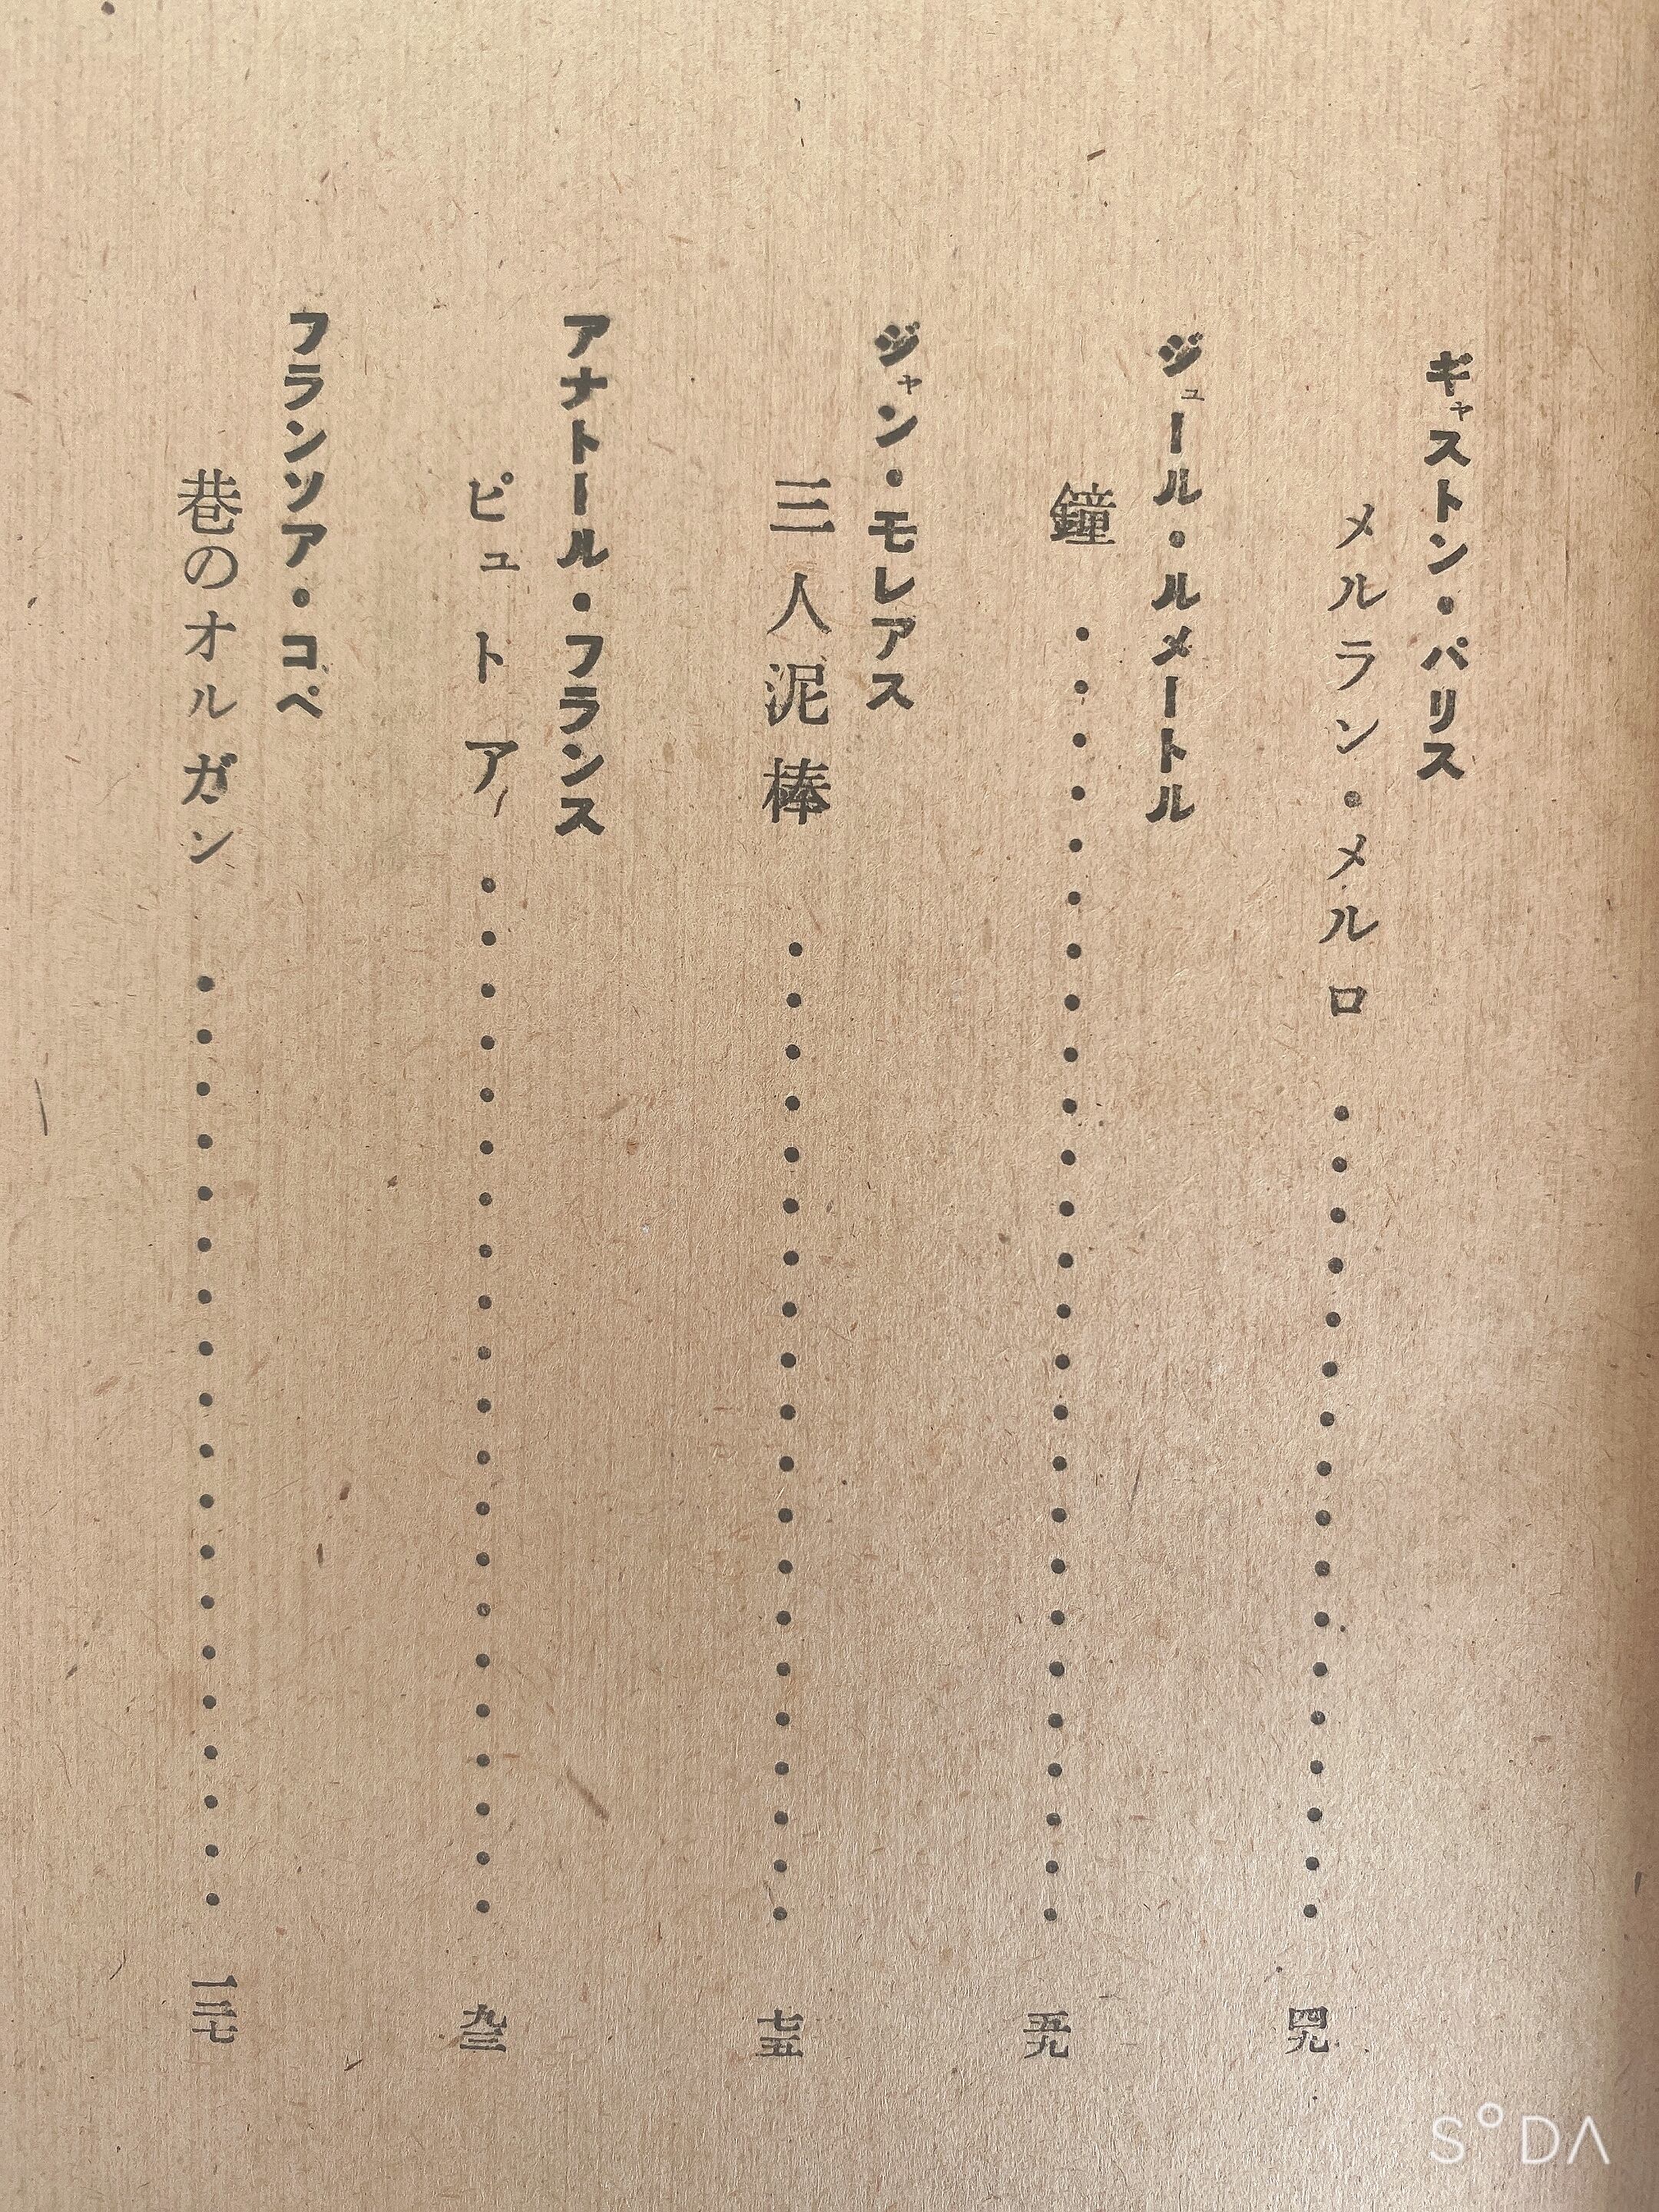 ギャストン・パリス
メルラン・メルロ・・・・・・・・・・・・・・・・・四九
ジュール・ルメートル
鐘・・・・・・・・・・・・・・・・・・・・・・・・・・五九
ジャン・モレアス
三人泥棒・・・・・・・・・・・・・・・・・・・・七五
アナトール・フランス
ピュトア・・・・・・・・・・・・・・・・・・・・・九三
フランソア・コペ
巷のオルガン・・・・・・・・・・・・・・・・・・・一二七
SODA